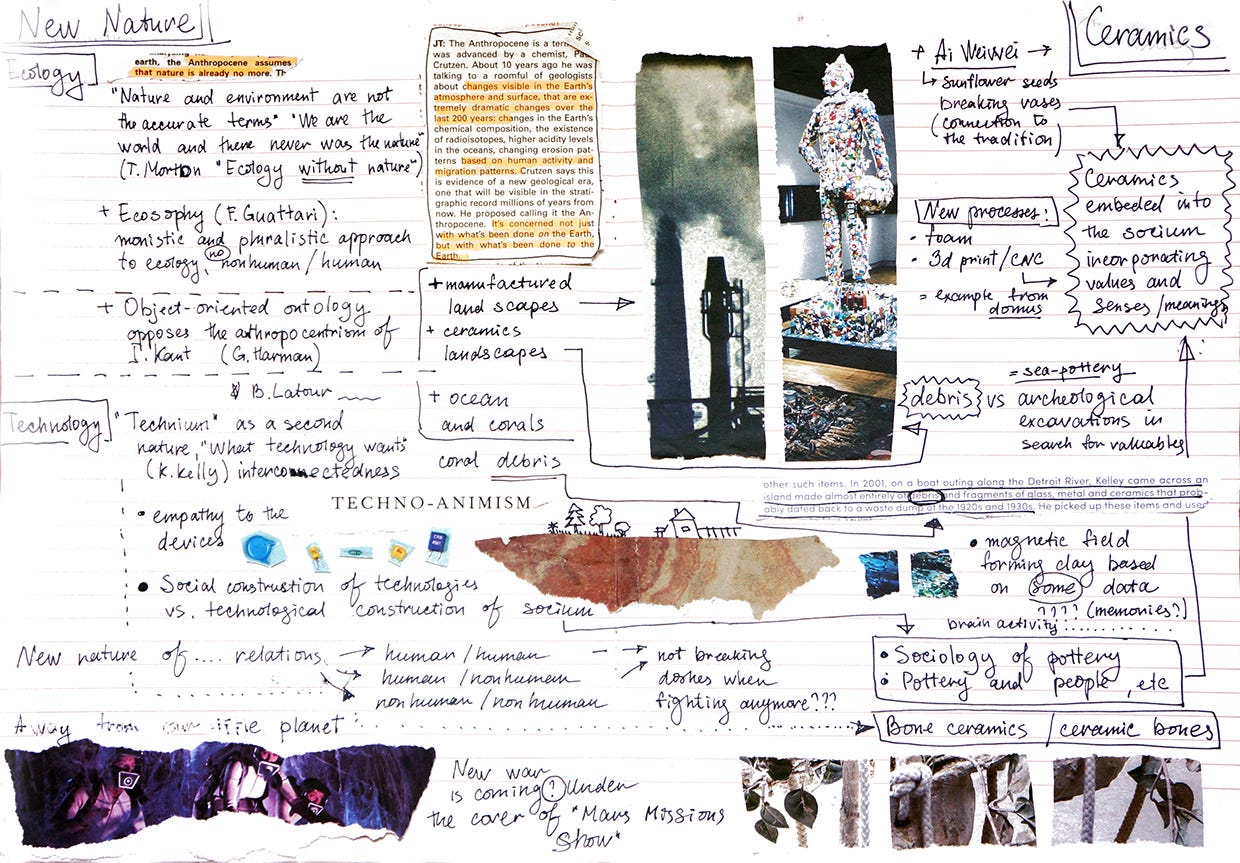 New Nature
Ecology
earth, the Anthropocene assumes
that nature is already no more. Th
"Nature and environment are not
the accurate terms" "We are the
world and there never was the nature"
(T. Morton "Ecology without nature")
+ Ecosophy (F. Guattari):
monistic and pluralistic approach
to ecology, no nonhuman/human
+ Object-oriented ontology
opposes the athropocentrism of
I. Kant (G. Harman)
B. Latour
Technology
"Technium" as a second
nature, "What technology wants"
(K. Kelly) interconnectedness
• empathy to the
devices
TECHNO-ANIMISM
• Social construction of technologies
vs. technological construction of socium
JT: The Anthropocene is a term
was advanced by a chemist, Pa
Crutzen. About 10 years ago he was
talking to a roomful of geologists
about changes visible in the Earth's
atmosphere and surface, that are ex-
tremely dramatic changes over the
last 200 years: changes in the Earth's
chemical composition, the existence
of radioisotopes, higher acidity levels
in the oceans, changing erosion pat-
terns based on human activity and
migration patterns. Crutzen says this
is evidence of a new geological era,
one that will be visible in the strati-
graphic record millions of years from
now. He proposed calling it the An-
thropocene. It's concerned not just
with what's been done on the Earth,
but with what's been done to the
Earth.
+ manufactured
landscapes
+ ceramics
landscapes
+ ocean
and corals
coral debris
Ceramics
+ Ai Weiwei →
↳ sunflower seeds
breaking vases
(connection to
the tradition)
New processes:
• foam
• 3d print/CNC
= example from
domus
Ceramics
embeded into
the socium
incorporating
values and
senses/meanings
= sea-pottery
debris vs archeological
excavations in
search for valuables
other such items. In 2001, on a boat outing along the Detroit River, Kelley came across an
island made almost entirely of debris and fragments of glass, metal and ceramics that prob-
ably dated back to a waste dump of the 1920s and 1930s. He picked up these items and used
• magnetic field
forming clay based
on some data
???? (memories?)
brain activity
• Sociology of pottery
• Pottery and people, etc
New nature of .... relations → human/human
human/nonhuman
nonhuman/nonhuman
not breaking
dishes when
fighting anymore???
Away from our little planet
Bone ceramics / ceramic bones
New war
is coming? Under
the cover of "Mars Missions
Show"